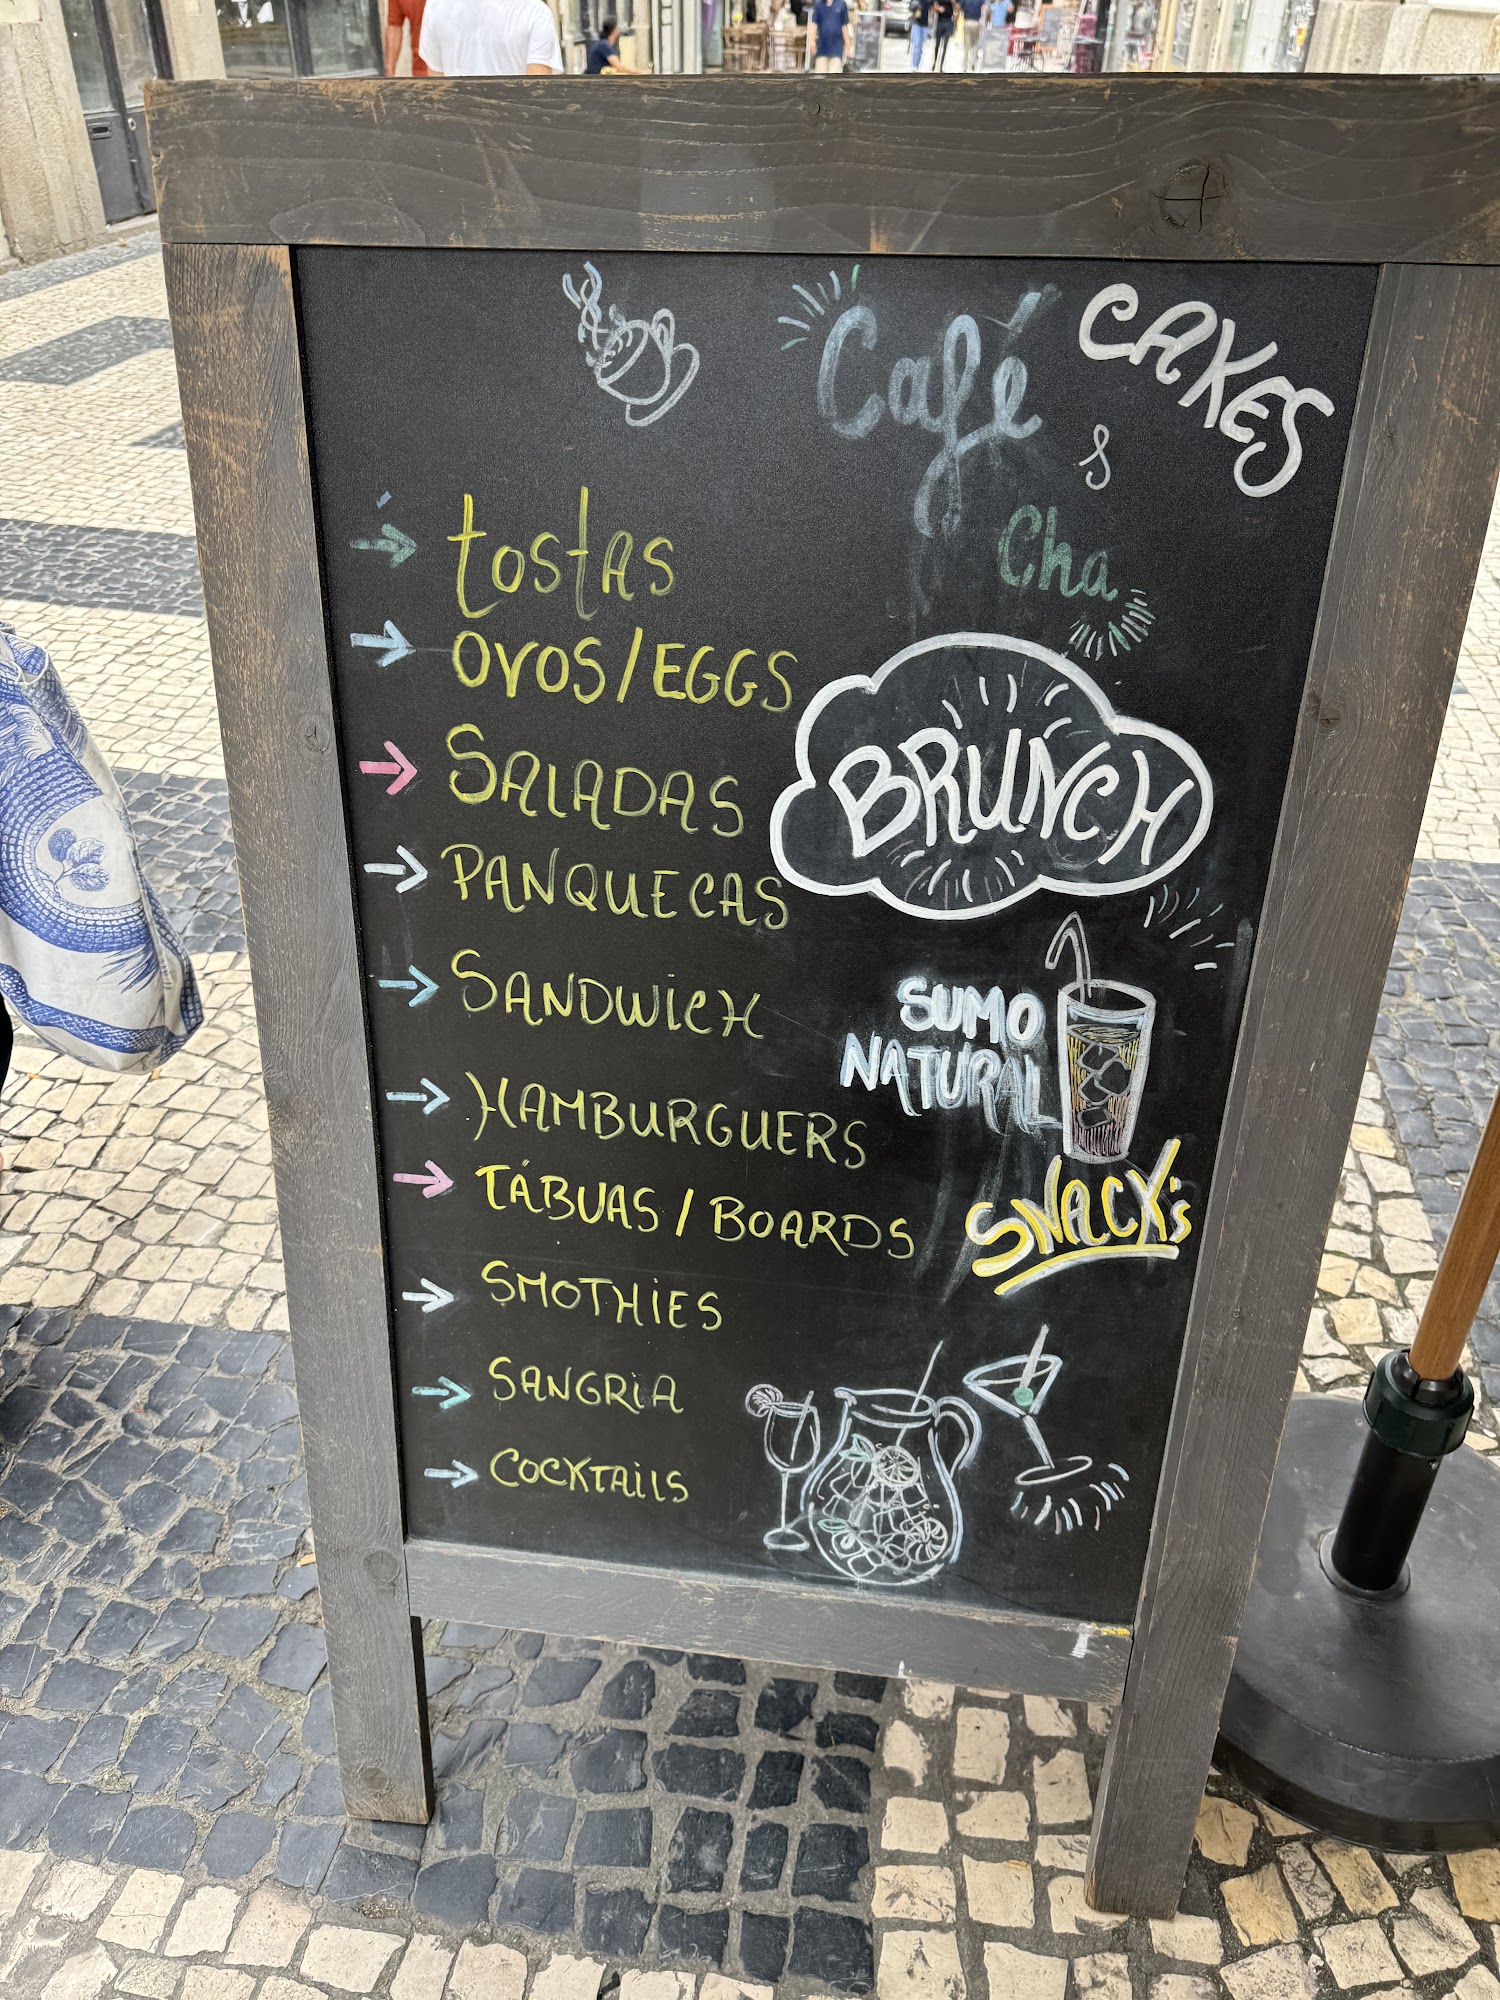 Café
CAKES
&
Cha
tostas
OVOS/EGGS
SALADAS
PANQUECAS
BRUNCH
SANDWICH
SUMO
NATURAL
HAMBURGUERS
TÁBUAS/BOARDS
SNACK's
SMOTHIES
SANGRIA
COCKTAILS